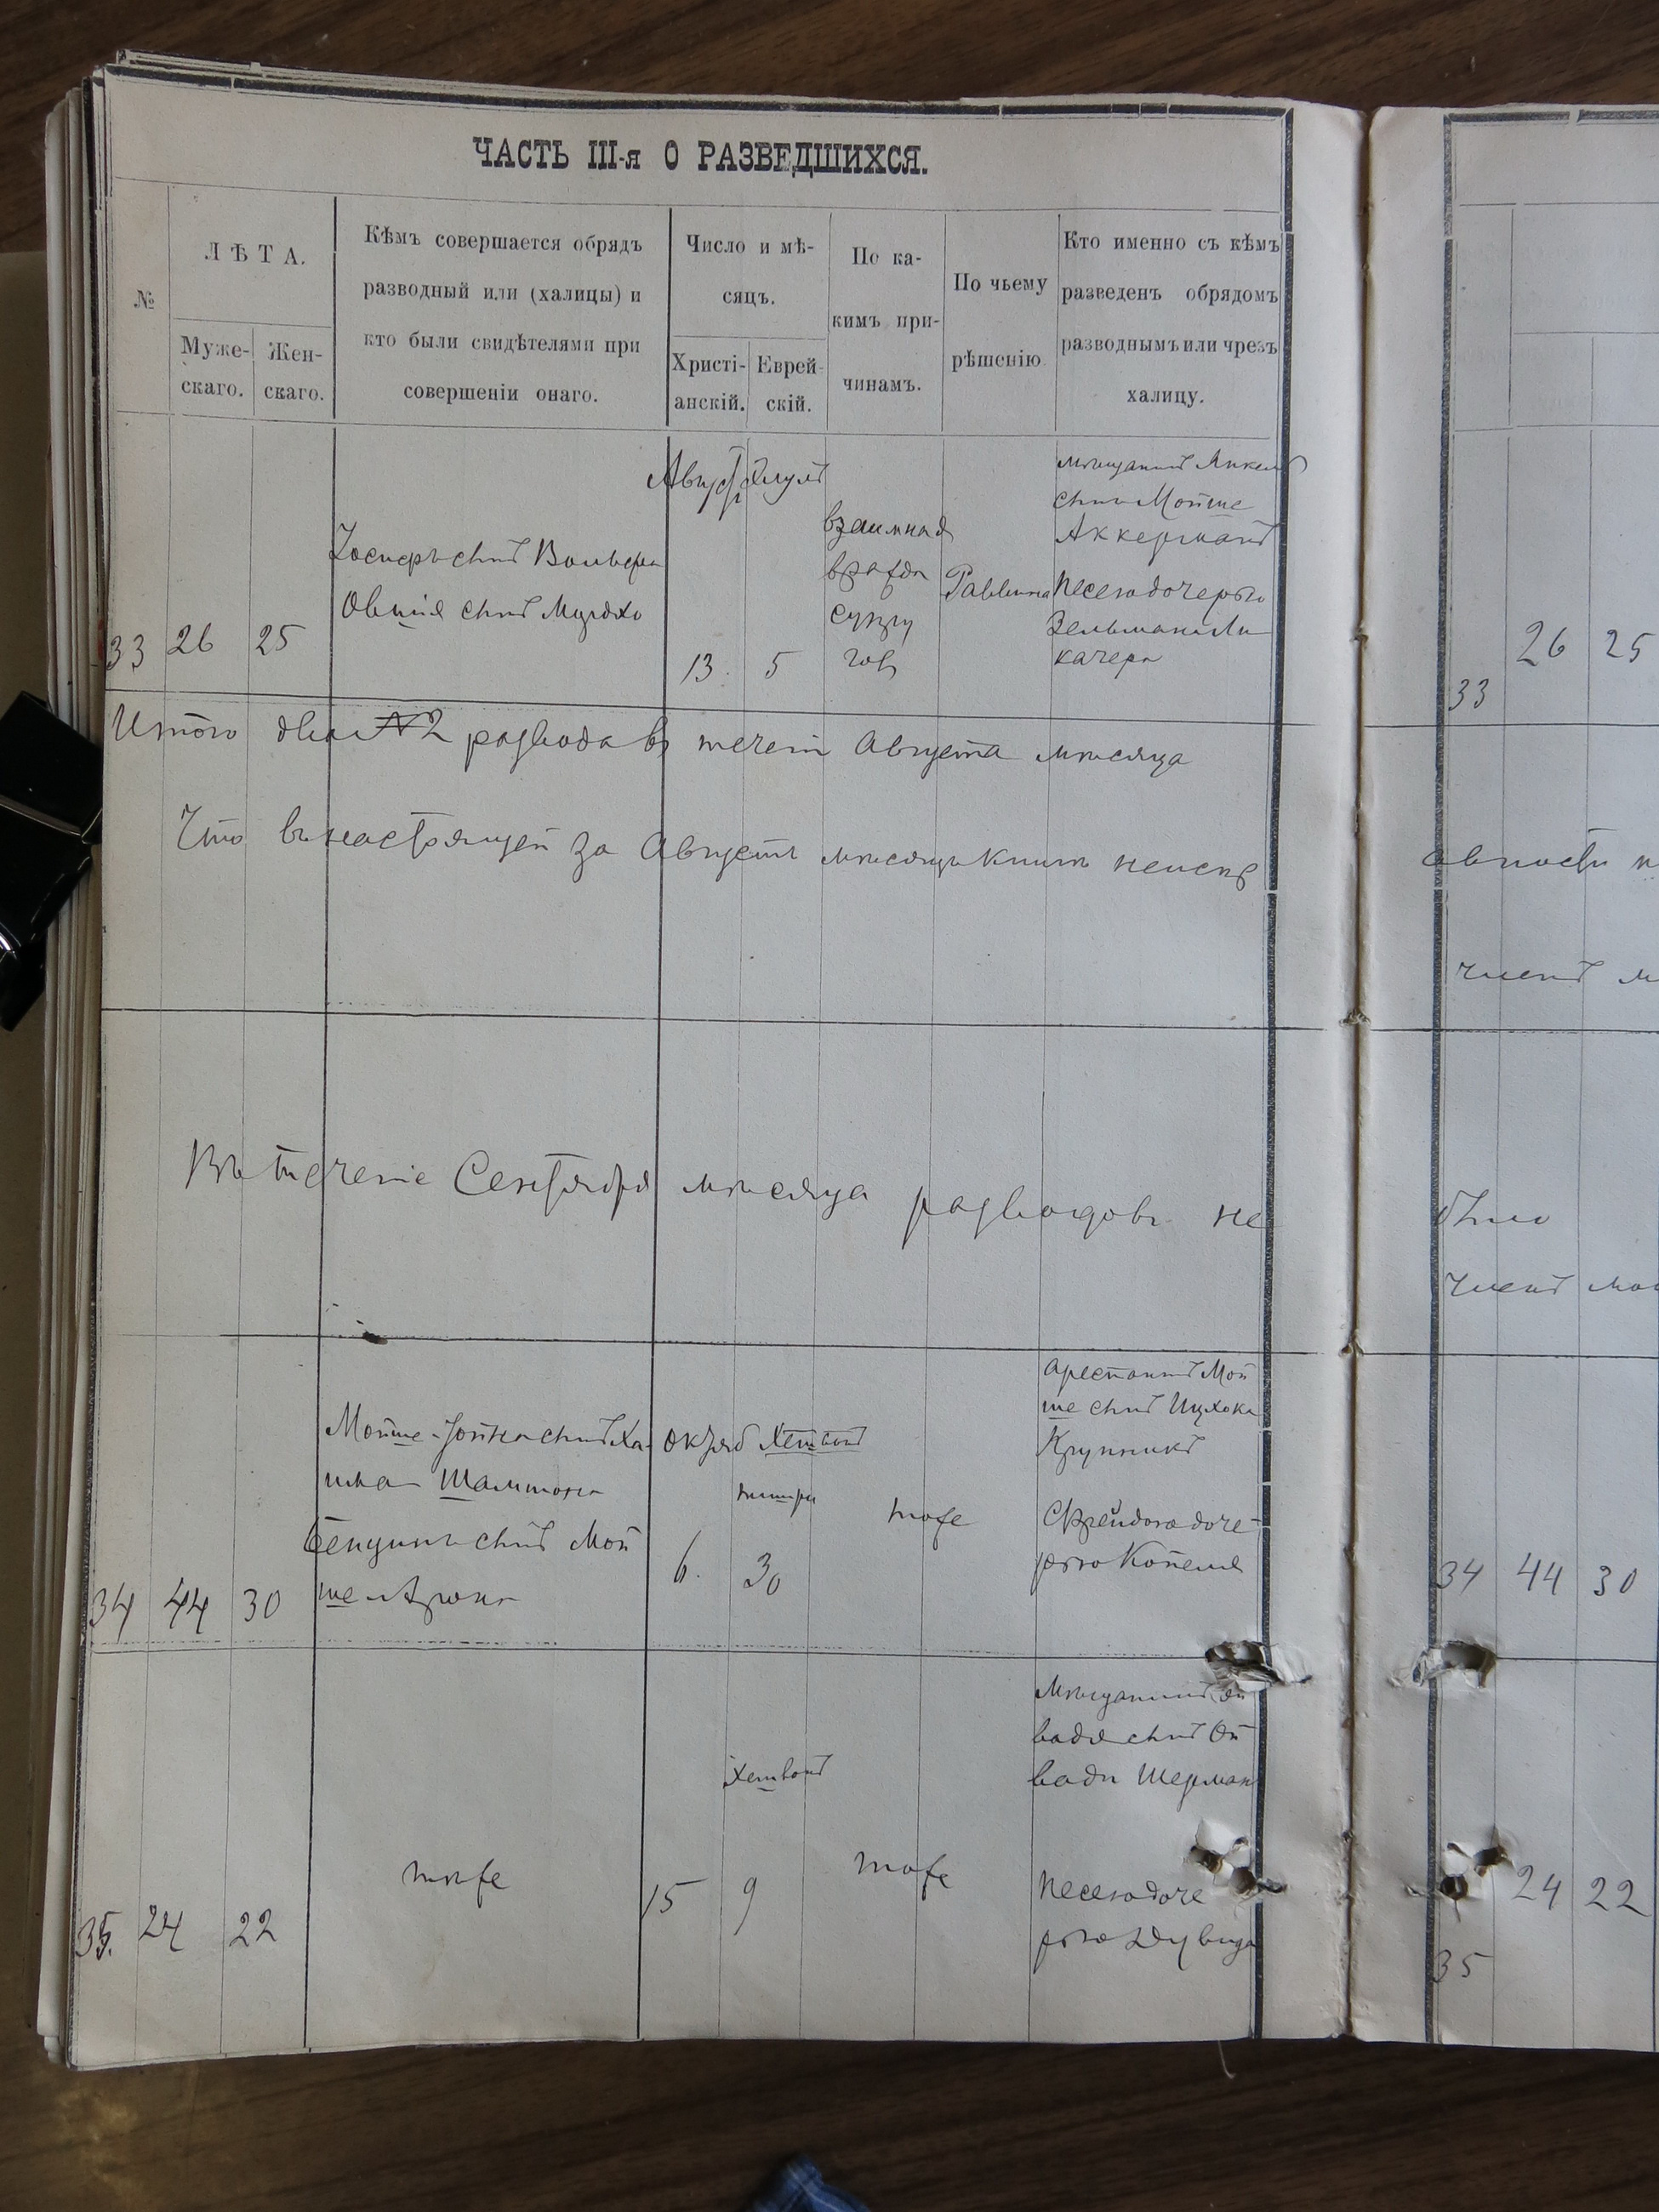 ЧАСТЬ III-я О РАЗВЕДШИХСЯ.
№
ЛѢТА.
Муже-
скаго.
Жен-
скаго.
Кѣмъ совершается обрядъ
разводный или (халицы) и
кто были свидѣтелями при
совершеніи онаго.
Число и мѣ-
сяцъ.
Христі-
анскій.
Еврей-
скій.
По ка-
кимъ при-
чинамъ.
По чьему
рѣшенію.
Кто именно съ кѣмъ
разведенъ обрядомъ
разводнымъ или чрезъ
халицу.
33
26
25
Іосифъ сынъ Вольфа
Овшія сынъ
Август
13
Элулъ
5
взаимная
вражда
супру
говъ
Раввина
мѣщанинъ Янкель
сынъ Мойше
Аккерманъ
Песею дочерью
Зельмана Ли
качера
33
26 25
Итого два № 2 развода въ течен Августа мѣсяца
Что въ настоящей за Августъ мѣсяцъ книгѣ неиспр
авности
членъ
Въ теченіе Сентября мѣсяца разводовъ не
было
членъ
34
44
30
Мойше-Іойна сынъ Ха-
има
сынъ Мой
ше Арона
Октяб
6.
Хешвонъ
тишри
30
тоже
Арестантъ Мой
ше сынъ Ицхока
Крупникъ
Фрейдою доче-
рью Копеля
34 44 30
35.
24
22
тоже
15
Хешвонъ
9
тоже
Мѣщанинъ Ой
вадя сынъ Ой
вади Шерман
Песею доче
рью Дувида
24 22
35